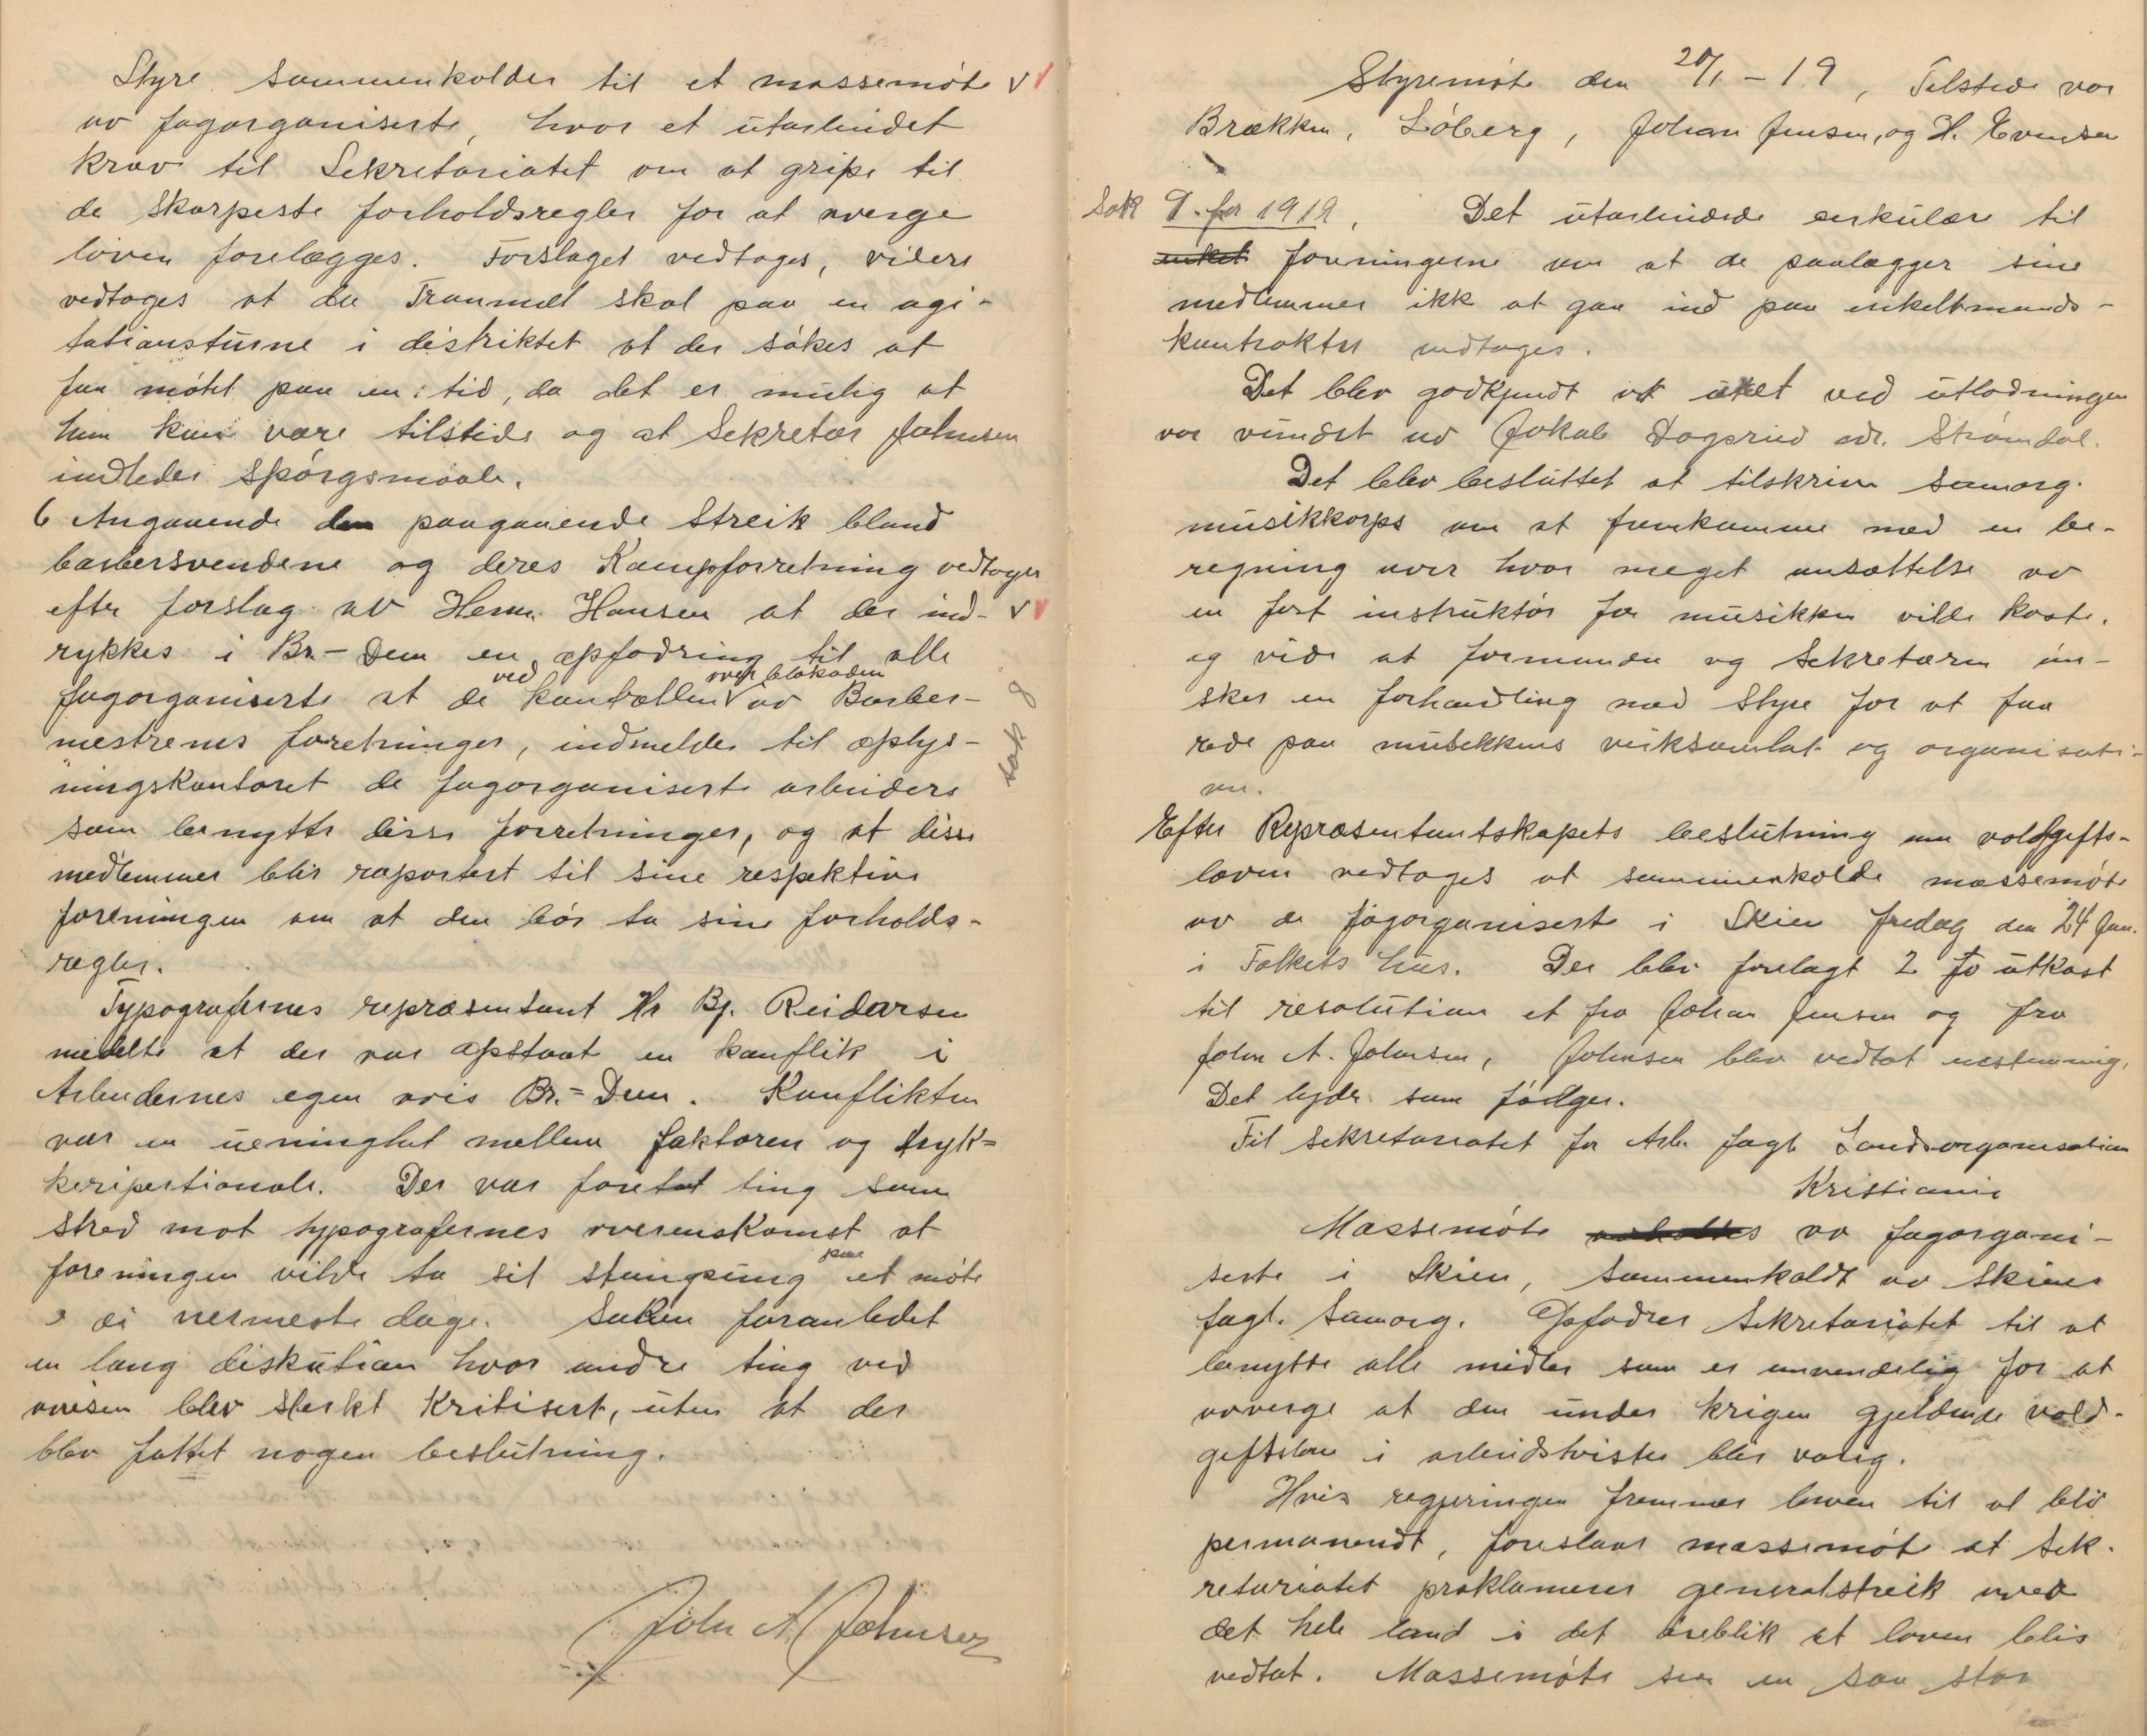 Styre sammenkolder til et massemöte v v
av fagorganiserte, hvor et utarbeidet
krav til Sekretariatet om at gripe til
de skarpeste forholdsregler for at averge
loven forelægges. Forslaget vedtages, videre
vedtages at da Tranmæl skal paa en agi-
tationsturne i distriktet at der sökes at
faa mötet paa en tid, da det er mulig at
hun kan være tilstede og at Sekretær Johnsen
indleder spörgsmaale.
6 Angaaende den paagaaende Streik bland
barbersvendene og deres Kampforretning vedtages
efter forslag av Herm. Hansen at der ind- v v
rykkes i Br.-Dem en opfodring til alle
fagorganiserte at de ved kontrollen over blokaden av Barber-
mestrenes foretninger, indmelder til oplys-
ningskontoret de fagorganiserte arbeidere
som benytter disse forretninger, og at disse
medlemmer blir raportert til sine respektive
foreningen om at den bör ta sine forholds-
regler.
sak 8
Typografernes repræsentant Hr Bj. Reidarsen
medelte at der var opstaat en konflik i
Arbeidernes egen avis Br.-Dem. Konflikten
var en uenighet mellem faktoren og tryk-
keripersionale. Der var foretat ting som
stred mot typografernes overenskomst at
foreningen vilde ta sit standpung paa et möte
i ei nermeste dage. Saken foranledet
en lang diskution hvor andre ting ved
avisen blev sterkt kritisert, uten at der
blev fattet nogen beslutning.
John A Johnsen
Styremöte den 20/1 - 19, Tilstede var
Brækken, Löberg, Johan Jensen, og H. Evensen
Sak 9. for 1919. Det utarbeidede serkulære til
enkelt foreningerne om at de paalægger sine
medlemmer ikk at gaa ind paa enkeltmands-
kontrakter vedtages.
Det blev godkjendt at uret ved utlodningen
var vundet av Jokab Dagsrud adr. Strömdal.
Det blev besluttet at tilskrive samorg.
musikkorps om at fremkomme med en be-
regning over hvor meget ansættelse av
en fast instruktör for musikken vilde koste.
og vide at formanden og Sekretæren ön-
sker en forhandling med Styre for at faa
rede paa musikkens virksomhet og organisati-
on.
Efter Repræsentantskapets beslutning om voldgifts-
loven vedtages at sammenkolde massemöte
av de fagorganiserte i Skien fredag den 24 Jan.
i Folkets hus. Der blev forelagt 2 to utkast
til resolution et fra Johan Jensen og fra
John A. Johnsen, Johnsen blev vedtat enstemmig.
Det lyder som fölger.
Til sekretariatet for Arb. fagl. Landsorganisation
Kristiania
Massemöte av fagorgani-
serte i Skien, sammenkoldt av Skiens
fagl. Samorg. Opfodrer Sekretariatet til at
benytte alle midler som er anvendelig for at
avverge at den under krigen gjeldende vold-
giftslov i arbeidstvister blir varig.
Hvis regjeringen fremmer loven til at bli
permanendt, foreslaar massemöte at Sek-
retariatet proklamerer generalstreik over
det hele land i det öieblik at loven blir
vedtat. Massemöte ser en saa stor